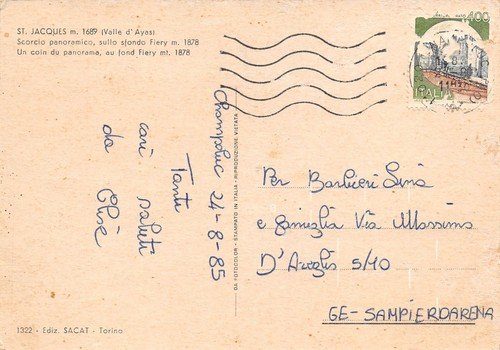 ST. JACQUES m. 1689 (Valle d'Ayas)
Scorcio panoramico, sullo sfondo Fiery m. 1878
Un coin du panorama, au fond Fiery mt. 1878
400
ITALIA
Champoluc 24-8-85
Tanti
cari saluti
da Elise
DA FOTOCOLOR - STAMPATO IN ITALIA - RIPRODUZIONE VIETATA
Per Barbieri Lina
e famiglia Via Massimo
D'Azeglio 5/10
GE-SAMPIERDARENA
1322 - Ediz. SACAT - Torino